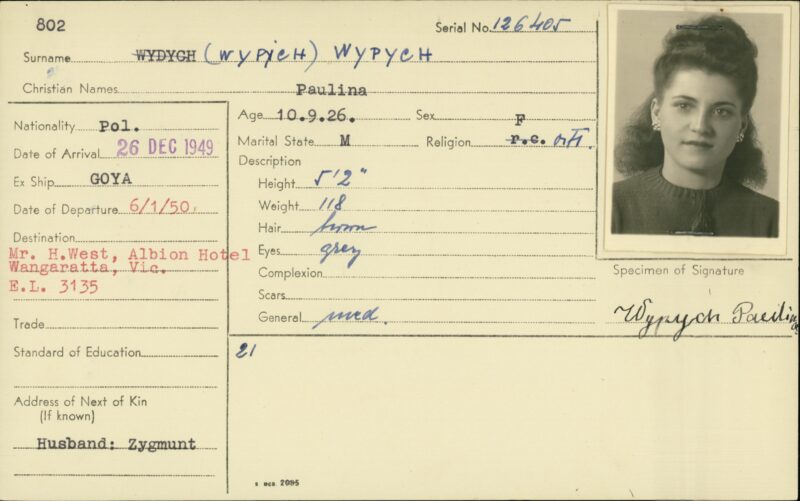 802
Serial No. 126405
Surname WYDYCH (WYPYCH) WYPYCH
Christian Names Paulina
Nationality Pol.
Date of Arrival 26 DEC 1949
Ex Ship GOYA
Date of Departure 6/1/50.
Destination
Mr. H.West, Albion Hotel
Wangaratta, Vic.
E.L. 3135
Trade
Standard of Education
Address of Next of Kin
(If known)
Husband: Zygmunt
Age 10.9.26. Sex F
Marital State M Religion r.c. orth.
Description
Height 5'2"
Weight 118
Hair brown
Eyes grey
Complexion
Scars
General med.
21
Specimen of Signature
Wypych Paulina
2095